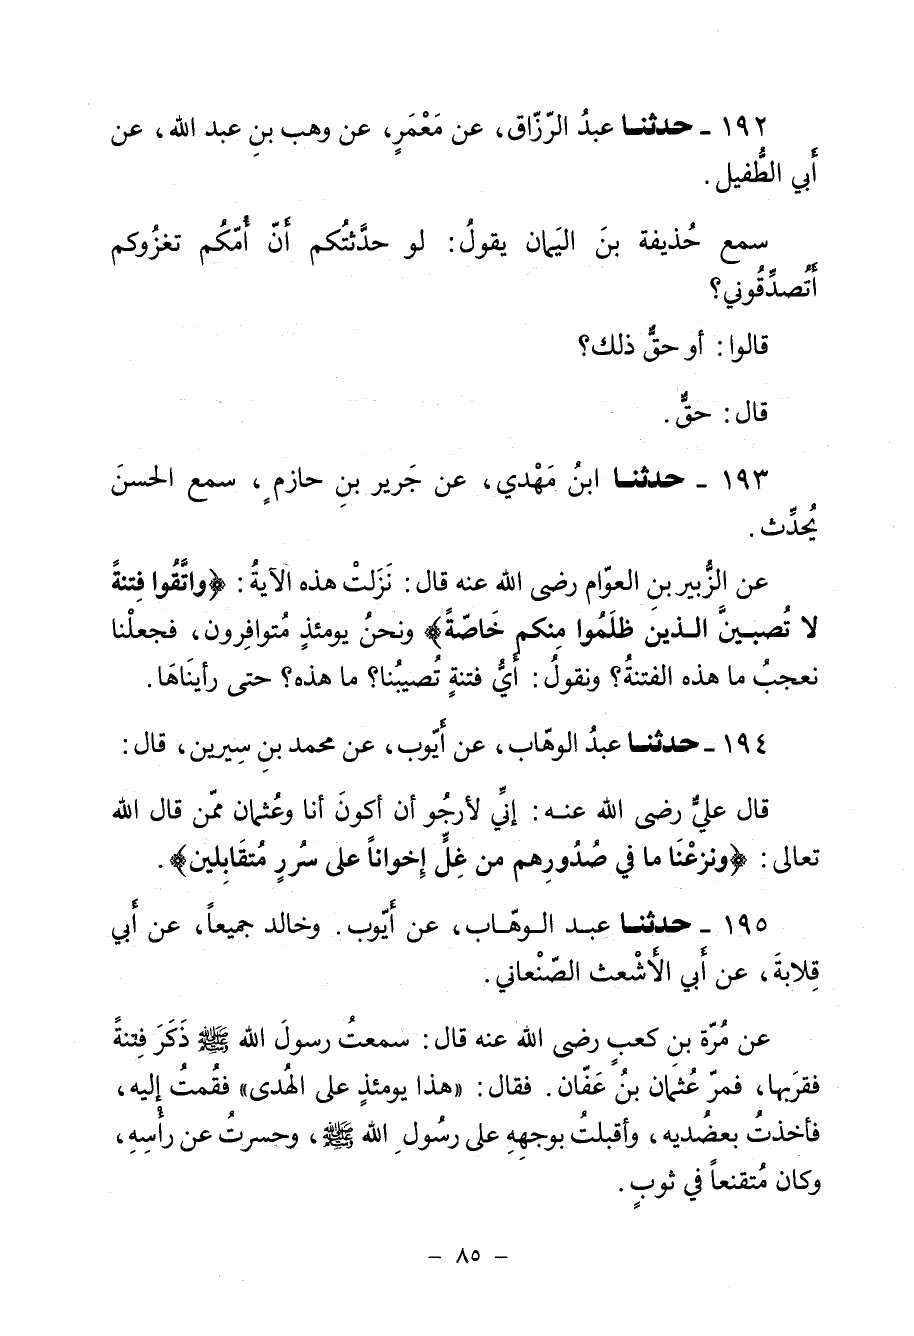 ١٩٢ ـ حدثنـا عبدُ الرّزّاق، عن مَعْمَرٍ، عن وهب بنِ عبد الله، عن
أَبي الطُّفيل.
سمع حُذيفة بنَ اليمان يقولُ: لو حدَّثتُكم أَنّ أُمّكُم تغزُوكم
أَتُصدِّقُوني؟
قالوا: أو حقٌّ ذلك؟
قال: حقٌّ.
١٩٣ ـ حدثنـا ابنُ مَهْدي، عن جَرير بنِ حازمٍ، سمع الحسنَ
يُحدِّث.
عن الزُّبير بنِ العوّام رضى الله عنه قال: نَزلتْ هذه الآيةُ: ﴿واتَّقُوا فِتنةً
لا تُصيبـنَّ الـذين ظلَمُوا مِنكم خَاصّةً﴾ ونحنُ يومئذٍ مُتوافِرون، فجعلْنا
نعجبُ ما هذه الفتنةُ؟ ونقولُ: أَيُّ فتنةٍ تُصيبُنا؟ ما هذه؟ حتى رأينَاهَا.
١٩٤ ـ حدثنـا عبدُ الوهّاب، عن أَيّوب، عن محمد بنِ سِيرين، قال:
قال عليٌّ رضى الله عنـه: إنِّي لأرجُو أن أكونَ أنا وعُثمان ممّن قال الله
تعالى: ﴿ونزعْنَا ما في صُدُورِهم من غِلٍّ إخواناً على سرُرٍ مُتقَابِلين﴾.
١٩٥ ـ حدثنـا عبـد الـوهّـاب، عن أَيّوب. وخالد جميعاً، عن أَبي
قِلابةَ، عن أَبي الأَشْعث الصّنْعاني.
عن مُرّة بنِ كعبٍ رضى الله عنه قال: سمعتُ رسولَ الله ﷺ ذَكَرَ فِتنةً
فقرّبها، فمرّ عُثمان بنُ عَفّان. فقال: «هذا يومئذٍ على الهُدى» فقُمتُ إليه،
فأخذتُ بعضُديه، وأقبلتُ بوجههِ على رسُولِ الله ﷺ، وحسرتُ عن رأْسِهِ،
وكان مُتقنعاً في ثوبٍ.
ـ ٨٥ ـ